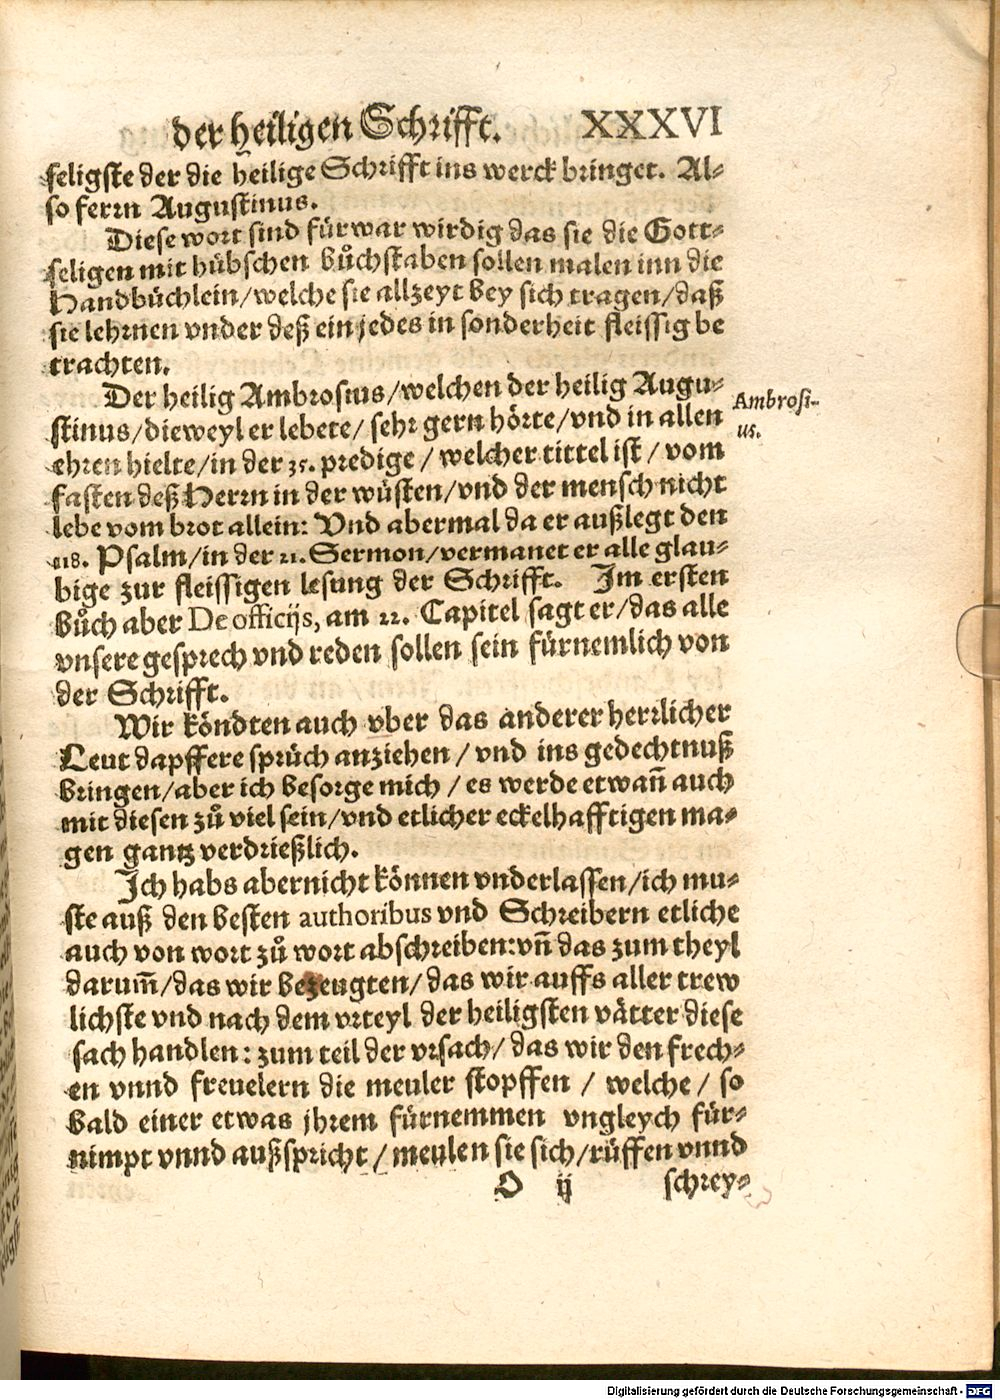 der heiligen Schrifft. XXXVI
seligste der die heilige Schrifft ins werck bringet. Al-
so ferrn Augustinus.
Diese wort sind fürwar wirdig das sie die Gott-
seligen mit hübschen bůchstaben sollen malen inn die
Handbüchlein/welche sie allzeyt bey sich tragen/daß
sie lehrnen vnder deß ein jedes in sonderheit fleissig be
trachten.
Der heilig Ambrosius/welchen der heilig Augu-
stinus/dieweyl er lebete/ sehr gern hörte/vnd in allen
ehren hielte/in der 35. predige / welcher tittel ist / vom
fasten deß Herrn in der wüsten/vnd der mensch nicht
lebe vom brot allein: Vnd abermal da er außlegt den
118. Psalm/in der 21. Sermon/vermanet er alle glau-
bige zur fleissigen lesung der Schrifft. Im ersten
bůch aber De officijs, am 22. Capitel sagt er/das alle
vnsere gesprech vnd reden sollen sein fürnemlich von
der Schrifft.
Ambrosi-
us.
Wir köndten auch vber das anderer herrlicher
Leut dapffere sprüch anziehen / vnd ins gedechtnuß
bringen/aber ich besorge mich / es werde etwañ auch
mit diesen zů viel sein/vnd etlicher eckelhafftigen ma-
gen gantz verdrießlich.
Ich habs aber nicht können vnderlassen/ich mu-
ste auß den besten authoribus vnd Schreibern etliche
auch von wort zů wort abschreiben:vñ das zum theyl
darum̃/das wir bezeugten/das wir auffs aller trew
lichste vnd nach dem vrteyl der heiligsten vätter diese
sach handlen: zum teil der vrsach/das wir den frech-
en vnnd freuelern die meuler stopffen / welche / so
bald einer etwas jhrem fürnemmen vngleych für-
nimpt vnnd außspricht / meulen sie sich/rüffen vnnd
O ij schrey-
Digitalisierung gefördert durch die Deutsche Forschungsgemeinschaft - DFG